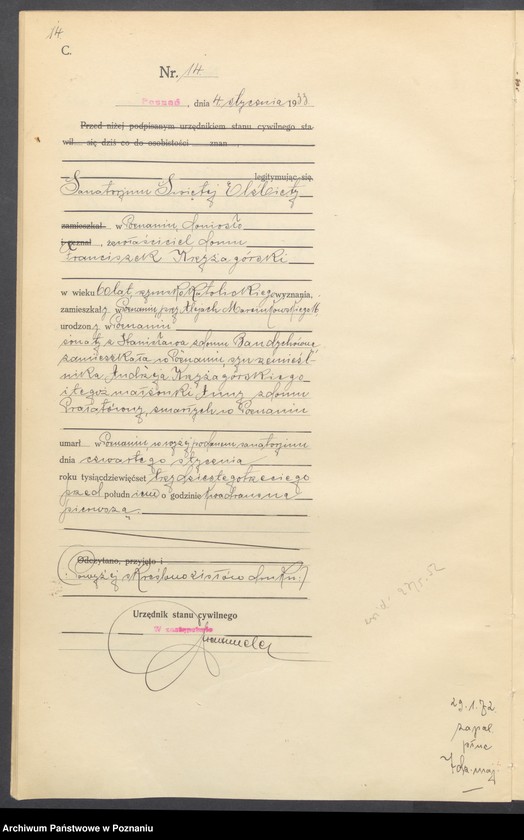 14
C.
Nr. 14
Poznań, dnia 4 stycznia 1933
Przed niżej podpisanym urzędnikiem stanu cywilnego sta-
wił się dziś co do osobistości znan
legitymując się
Sanatorjum Świętej Elżbiety
zamieszkał w Poznaniu, doniosło
i zeznał, że właściciel domu
Franciszek Krzyżagórski
w wieku 60 lat, rzymsko katolickiego wyznania,
zamieszkały w Poznaniu, przy Alejach Marcinkowskiego 16
urodzony w Poznaniu
żonaty z Stanisławą z domu
zamieszkałą w Poznaniu, syn rzemieśl-
nika Andrzeja Krzyżagórskiego
i tegoż małżonki Anny z domu
zmarłych w Poznaniu
umarł w Poznaniu, w wyżej podanem sanatorjum
dnia czwartego stycznia
roku tysiącdziewięćset trzydziestego trzeciego
przed południem o godzinie kwadrans na
pierwszą.
Odczytano, przyjęto i
Powyżej skreślono słów druku.
Urzędnik stanu cywilnego
W zastępstwie
29.1.72
zapal.
płuc
Archiwum Państwowe w Poznaniu